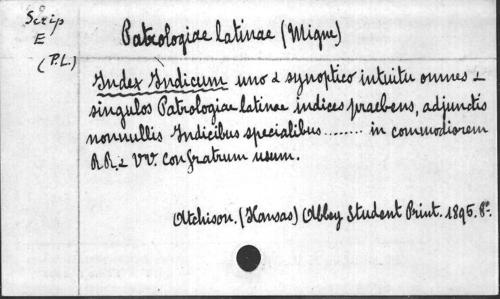 Scrip
E
(P.L.)
Patrologiae latinae (Migne)
Index Indicum uno & synoptico intuitu omnes &
singulos Patrologiae latinae indices praebens, adjunctis
nonnullis Indicibus specialibus ........ in commodiorem
RR. & VV. confratrum usum.
Atchison. (Kansas) Abbey Student Print. 1895. 8º.